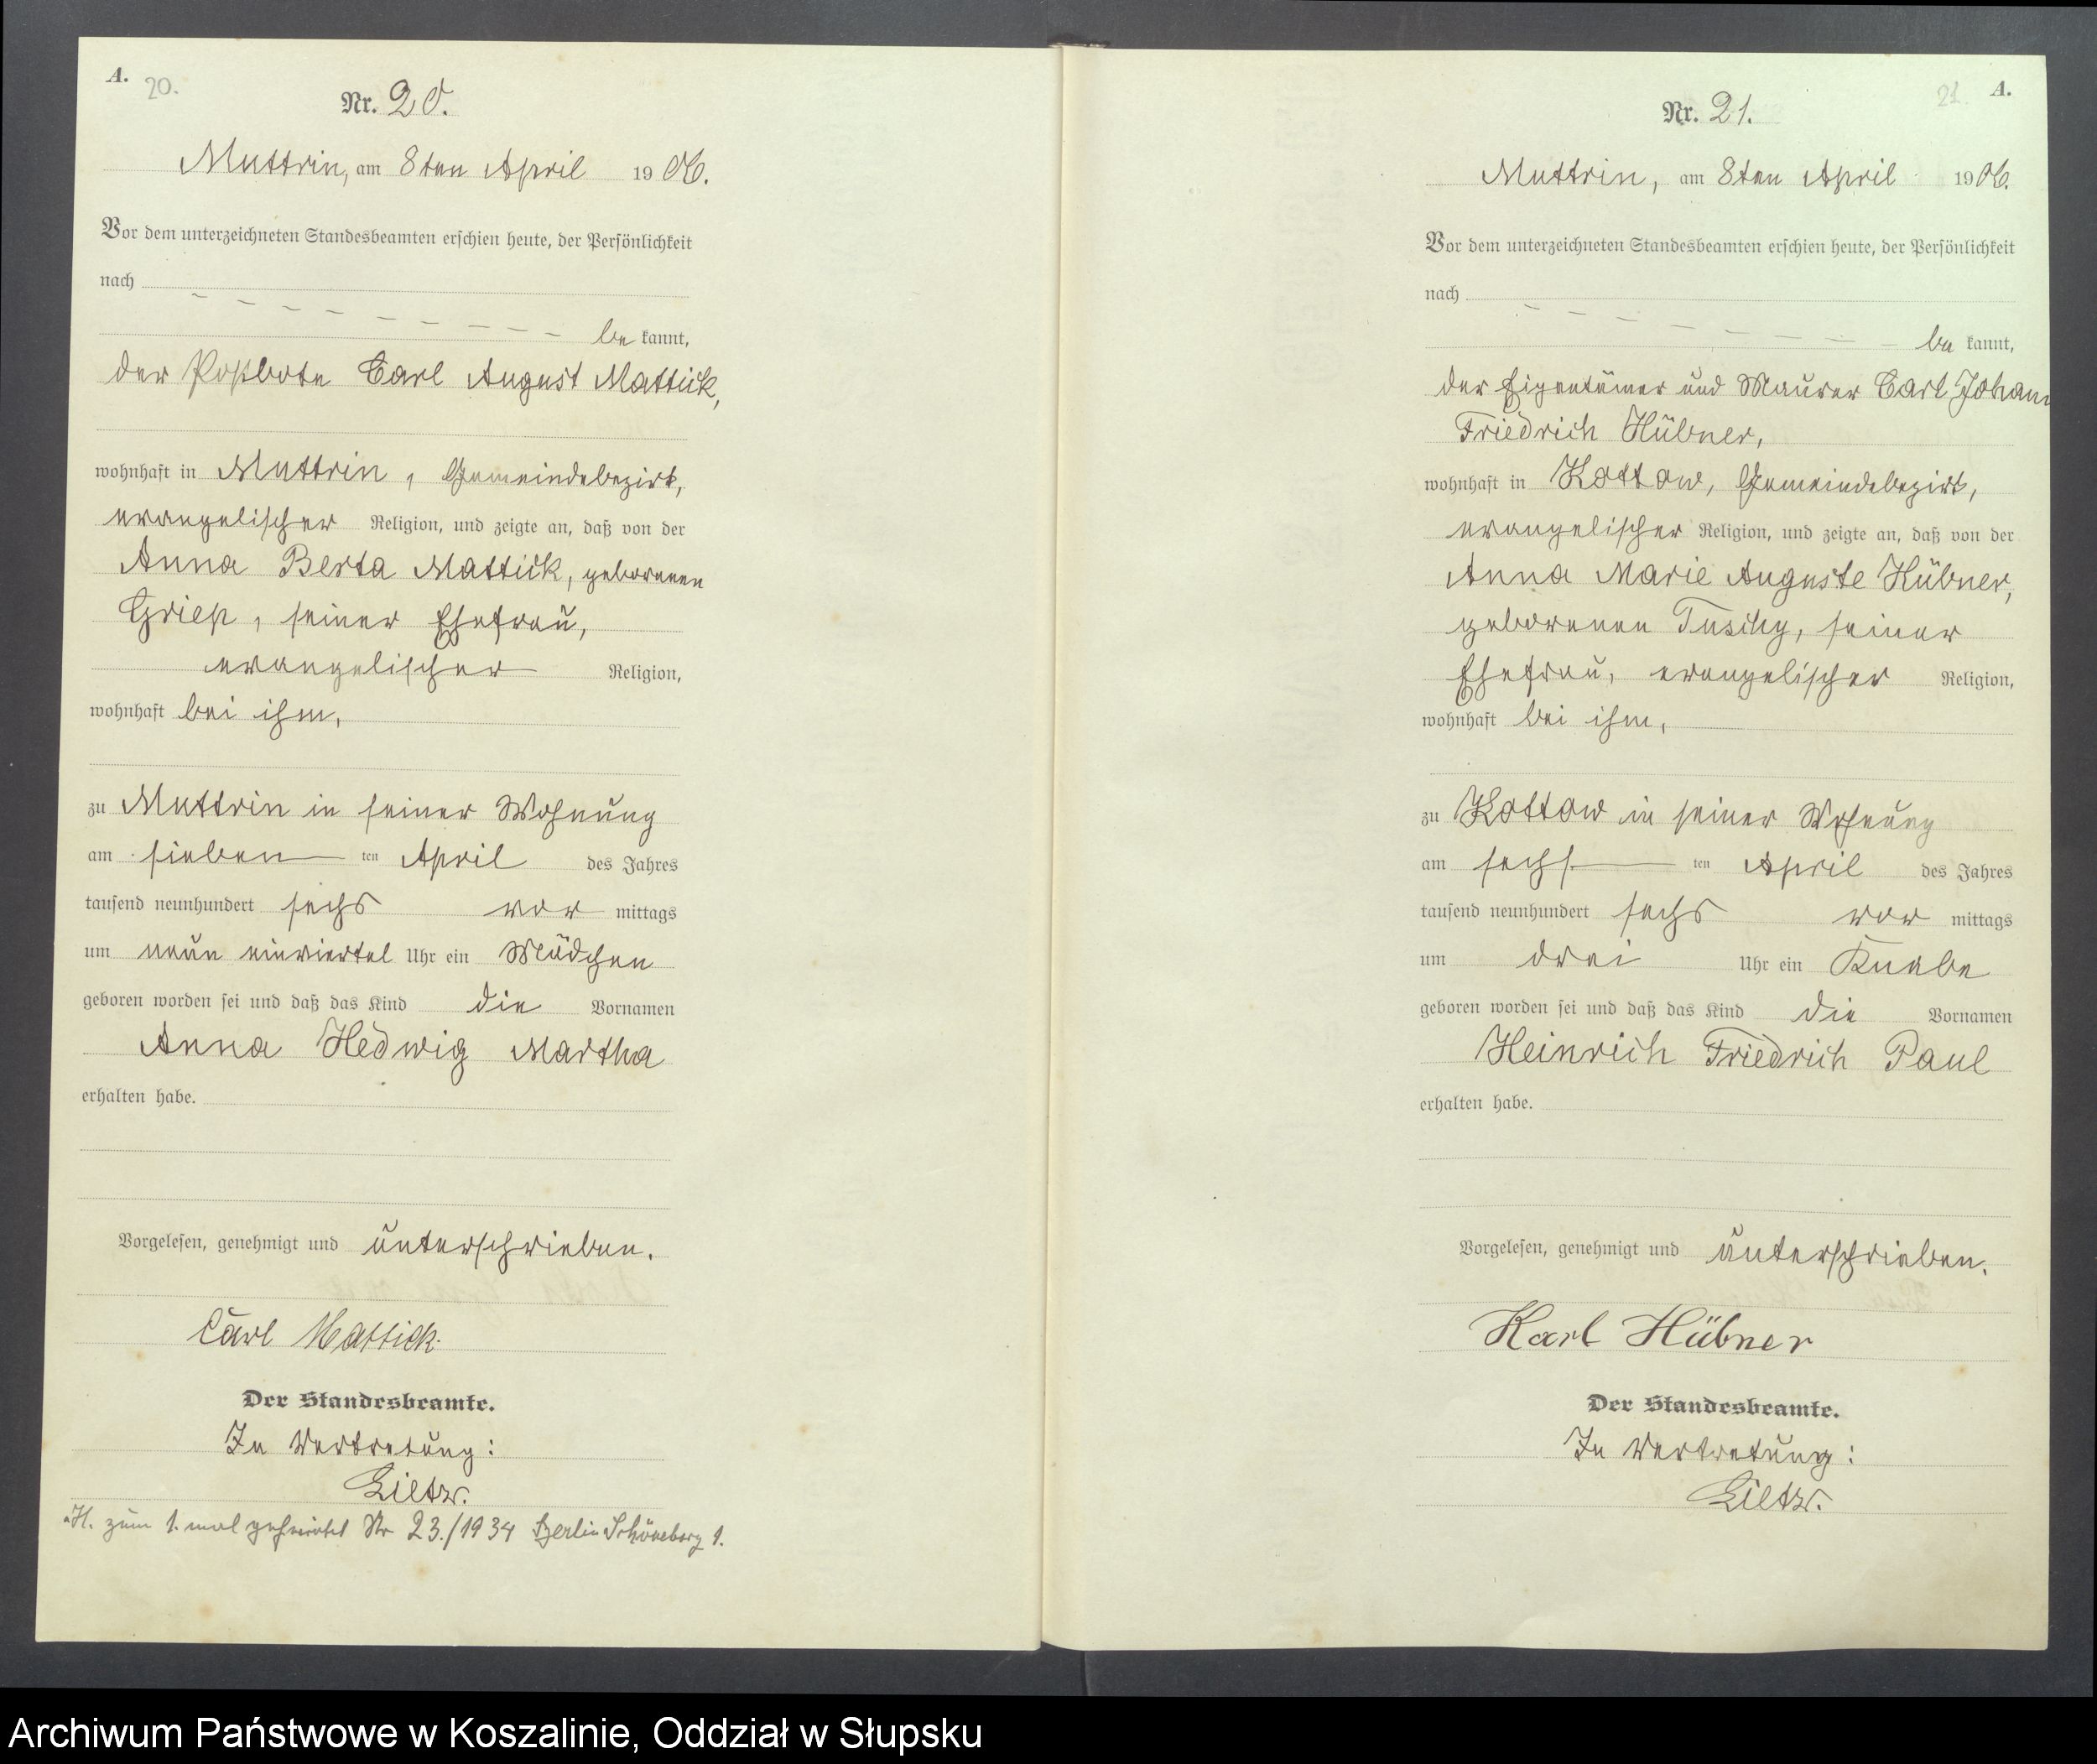 A.
20.
Nr. 20.
Muttrin, am 8ten April 1906.
Vor dem unterzeichneten Standesbeamten erschien heute, der Persönlichkeit
nach
be kannt,
der Postbote Carl August Mattick,
wohnhaft in Muttrin, Gemeindebezirk,
evangelischer Religion, und zeigte an, daß von der
Anna Berta Mattick, geborenen
Griep, seiner Ehefrau,
evangelischer Religion,
wohnhaft bei ihm,
zu Muttrin in seiner Wohnung
am sieben ten April des Jahres
tausend neunhundert sechs vor mittags
um neun einviertel Uhr ein Mädchen
geboren worden sei und daß das Kind die Vornamen
Anna Hedwig Martha
erhalten habe.
Vorgelesen, genehmigt und unterschrieben.
Carl Mattick.
Der Standesbeamte.
In Vertretung:
Lietz.
zum 1. mal geheiratet Nr 23./1934 Berlin Schöneberg 1.
21. A.
Nr. 21.
Muttrin, am 8ten April 1906.
Vor dem unterzeichneten Standesbeamten erschien heute, der Persönlichkeit
nach
be kannt,
der Eigentümer und Maurer Carl Johann
Friedrich Hübner,
wohnhaft in Kottow, Gemeindebezirk,
evangelischer Religion, und zeigte an, daß von der
Anna Marie Auguste Hübner,
geborenen Tuschy, seiner
Ehefrau, evangelischer Religion,
wohnhaft bei ihm,
zu Kottow in seiner Wohnung
am sechs ten April des Jahres
tausend neunhundert sechs vor mittags
um drei Uhr ein Knabe
geboren worden sei und daß das Kind die Vornamen
Heinrich Friedrich Paul
erhalten habe.
Vorgelesen, genehmigt und unterschrieben.
Karl Hübner
Der Standesbeamte.
In Vertretung:
Lietz.
Archiwum Państwowe w Koszalinie, Oddział w Słupsku